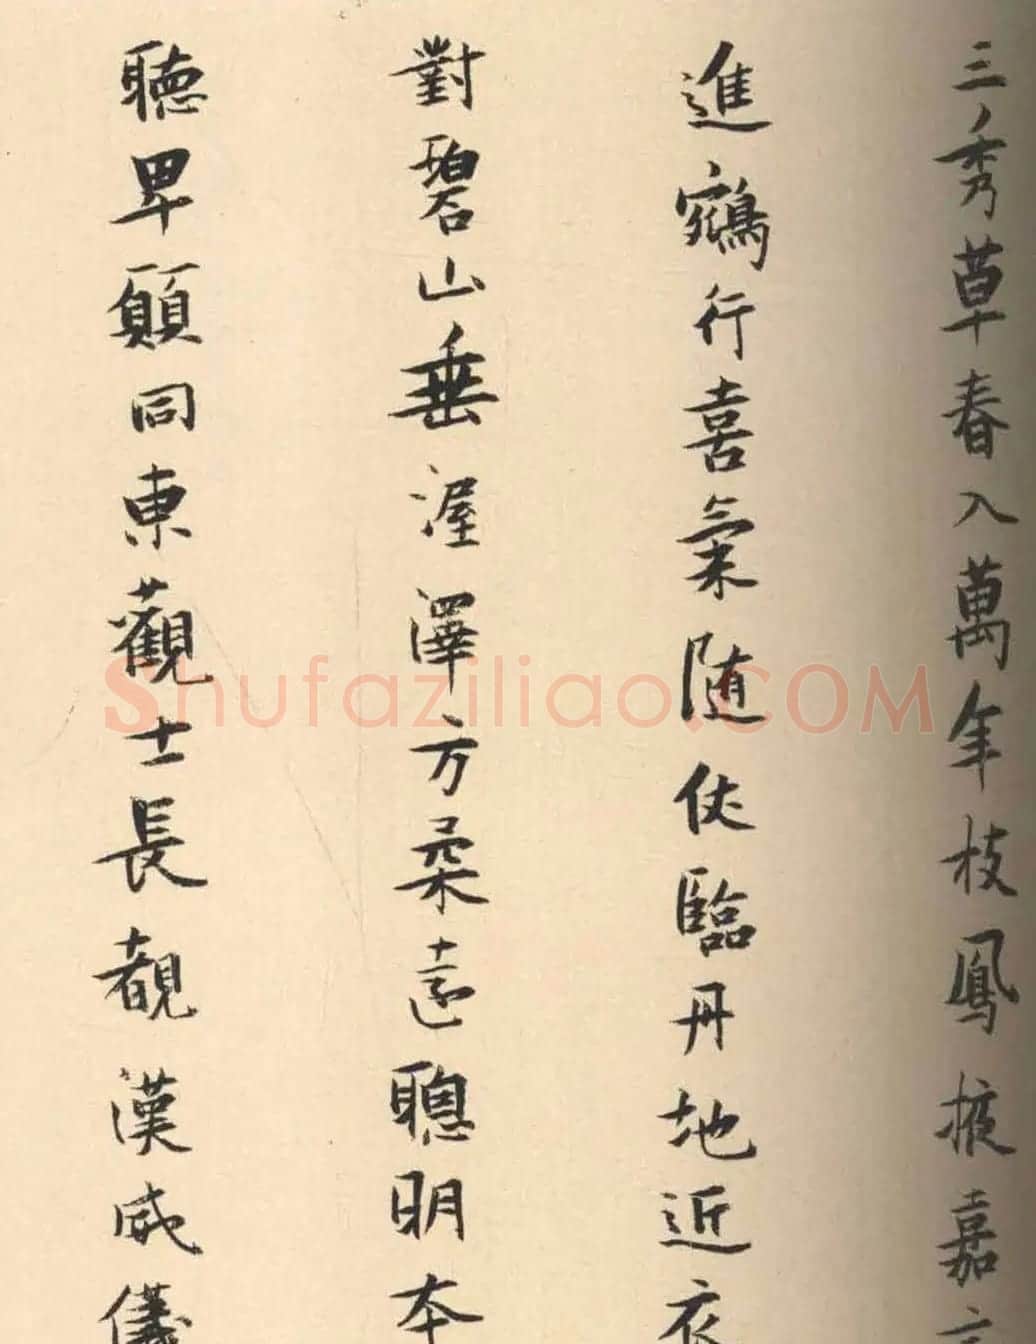 三秀草春入萬年枝鳳掖嘉
進鵷行喜氣随仗臨丹地近衣
對碧山垂渥澤方柔遠聰明本
聴卑願同東觀士長覩漢威儀
Shufaziliao.COM